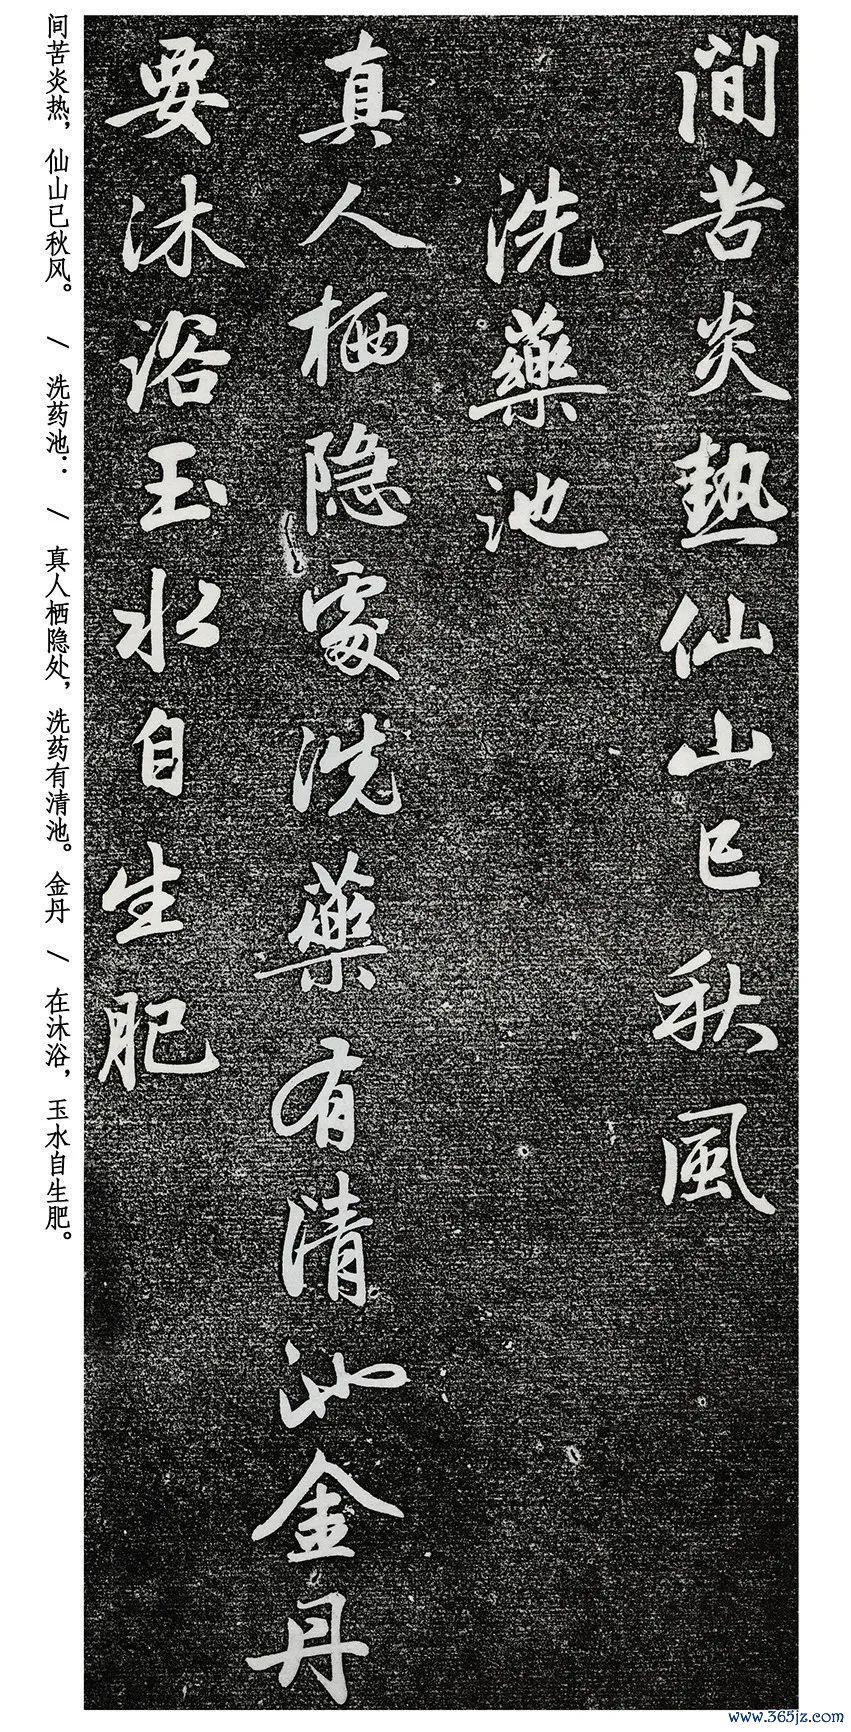 間苦炎熱仙山已秋風
洗藥池
真人栖隐處洗藥有清池金丹
要沐浴玉水自生肥
间苦炎热，仙山已秋风。 / 洗药池： / 真人栖隐处，洗药有清池。金丹 / 在沐浴，玉水自生肥。
www.365jz.com